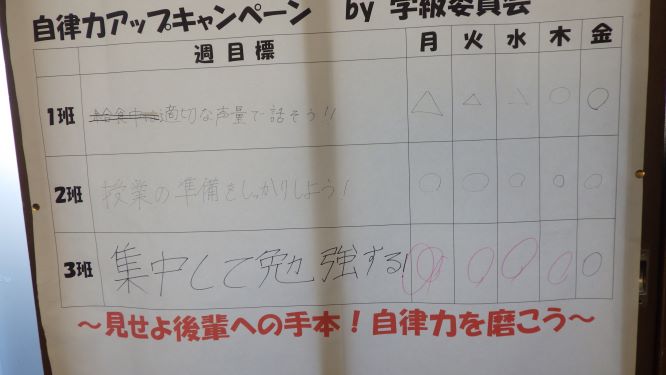 自律力アップキャンペーン by 学級委員会
週目標 月 火 水 木 金
1班 給食中は適切な声量で話そう!! △ △ △ ○ ○
2班 授業の準備をしっかりしよう! ○ ○ ○ ○ ○
3班 集中して勉強する! ○ ○ ○ ○ ○
～見せよ後輩への手本！自律力を磨こう～